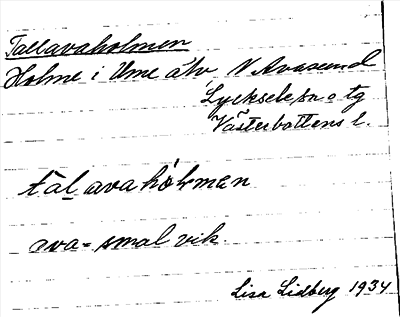 Tallavaholmen
Holme i Ume älv N Avasund
Lycksele sn o tg
Västerbottens l.
tàl avahòlmen
ava = smal vik.
Lisa Lidberg 1934